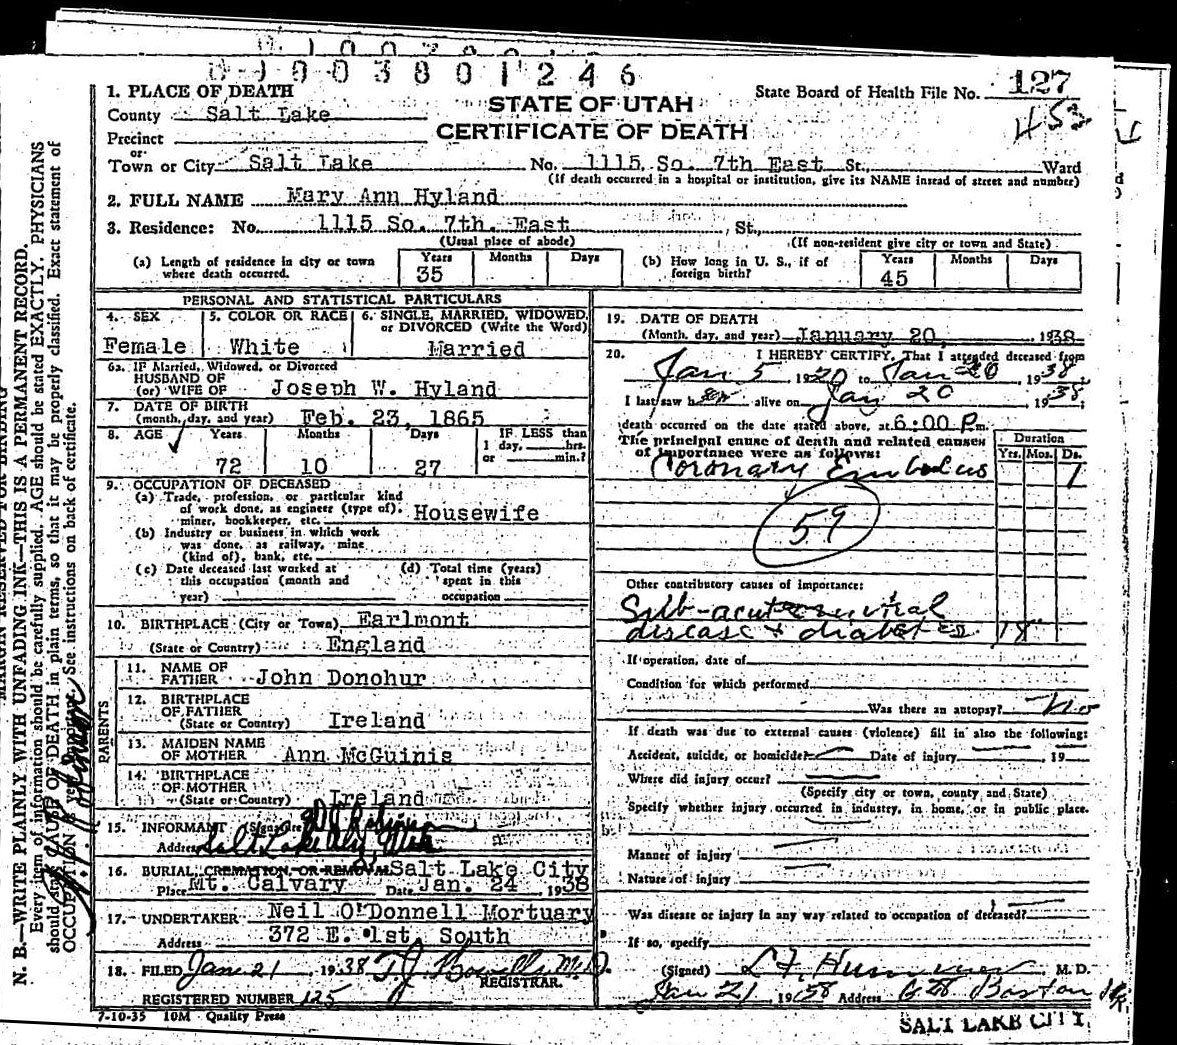 0 1 0 0 3 8 0 1 2 4 6
1. PLACE OF DEATH
STATE OF UTAH
State Board of Health File No. 127
County Salt Lake
CERTIFICATE OF DEATH
453
Precinct
or
Town or City Salt Lake No. 1115 So. 7th East St., Ward
(If death occurred in a hospital or institution, give its NAME insead of street and number)
2. FULL NAME Mary Ann Hyland
3. Residence: No. 1115 So. 7th. East , St.,
(Usual place of abode) (If non-resident give city or town and State)
(a) Length of residence in city or town where death occurred. Years 35 Months Days
(b) How long in U. S., if of foreign birth? Years 45 Months Days
PERSONAL AND STATISTICAL PARTICULARS
4. SEX Female
5. COLOR OR RACE White
6. SINGLE, MARRIED, WIDOWED, or DIVORCED (Write the Word) Married
6a. IF Married, Widowed, or Divorced
HUSBAND OF
(or) WIFE OF Joseph W. Hyland
7. DATE OF BIRTH
(month, day, and year) Feb. 23, 1865
8. AGE Years 72 Months 10 Days 27 IF LESS than 1 day, hrs. or min.?
9. OCCUPATION OF DECEASED
(a) Trade, profession, or particular kind
of work done, as engineer (type of),
miner, bookkeeper, etc. Housewife
(b) Industry or business in which work
was done, as railway, mine
(kind of), bank, etc.
(c) Date deceased last worked at
this occupation (month and
year)
(d) Total time (years)
spent in this
occupation
10. BIRTHPLACE (City or Town) Earlmont
(State or Country) England
PARENTS
11. NAME OF
FATHER John Donohur
12. BIRTHPLACE
OF FATHER
(State or Country) Ireland
13. MAIDEN NAME
OF MOTHER Ann McGuinis
14. BIRTHPLACE
OF MOTHER
(State or Country) Ireland
15. INFORMANT (Signature)
Address Salt Lake City, Utah
16. BURIAL, CREMATION, OR REMOVAL Salt Lake City
Place Mt. Calvary Date Jan. 24, 1938
17. UNDERTAKER Neil O'Donnell Mortuary
Address 372 E. 1st South
18. FILED Jan 21, 1938 T. J. Howells M.D.
REGISTRAR.
REGISTERED NUMBER 125
7-10-35 10M Quality Press
19. DATE OF DEATH
(Month, day, and year) January 20, 1938
20. I HEREBY CERTIFY, That I attended deceased from
Jan 5 1920 to Jan 20, 1938,
I last saw her alive on Jan 20, 1938,
death occurred on the date stated above, at 6:00 P m.
The principal cause of death and related causes
of importance were as follows:
Duration
Yrs. Mos. Ds.
Coronary Embolus 1
59
Other contributory causes of importance:
Sub-acute mitral
disease + diabetes 18
If operation, date of
Condition for which performed
Was there an autopsy? No
If death was due to external causes (violence) fill in also the following:
Accident, suicide, or homicide? Date of injury , 19
Where did injury occur?
(Specify city or town, county and State)
Specify whether injury occurred in industry, in home, or in public place.
Manner of injury
Nature of injury
Was disease or injury in any way related to occupation of deceased?
If so, specify
(Signed) M. D.
Jan 21, 1938 Address Boston
SALT LAKE CITY
MARGIN RESERVED FOR BINDING
N. B.—WRITE PLAINLY WITH UNFADING INK—THIS IS A PERMANENT RECORD.
Every item of information should be carefully supplied. AGE should be stated EXACTLY. PHYSICIANS
should state CAUSE OF DEATH in plain terms, so that it may be properly classified. Exact statement of
OCCUPATION is very important. See instructions on back of certificate.